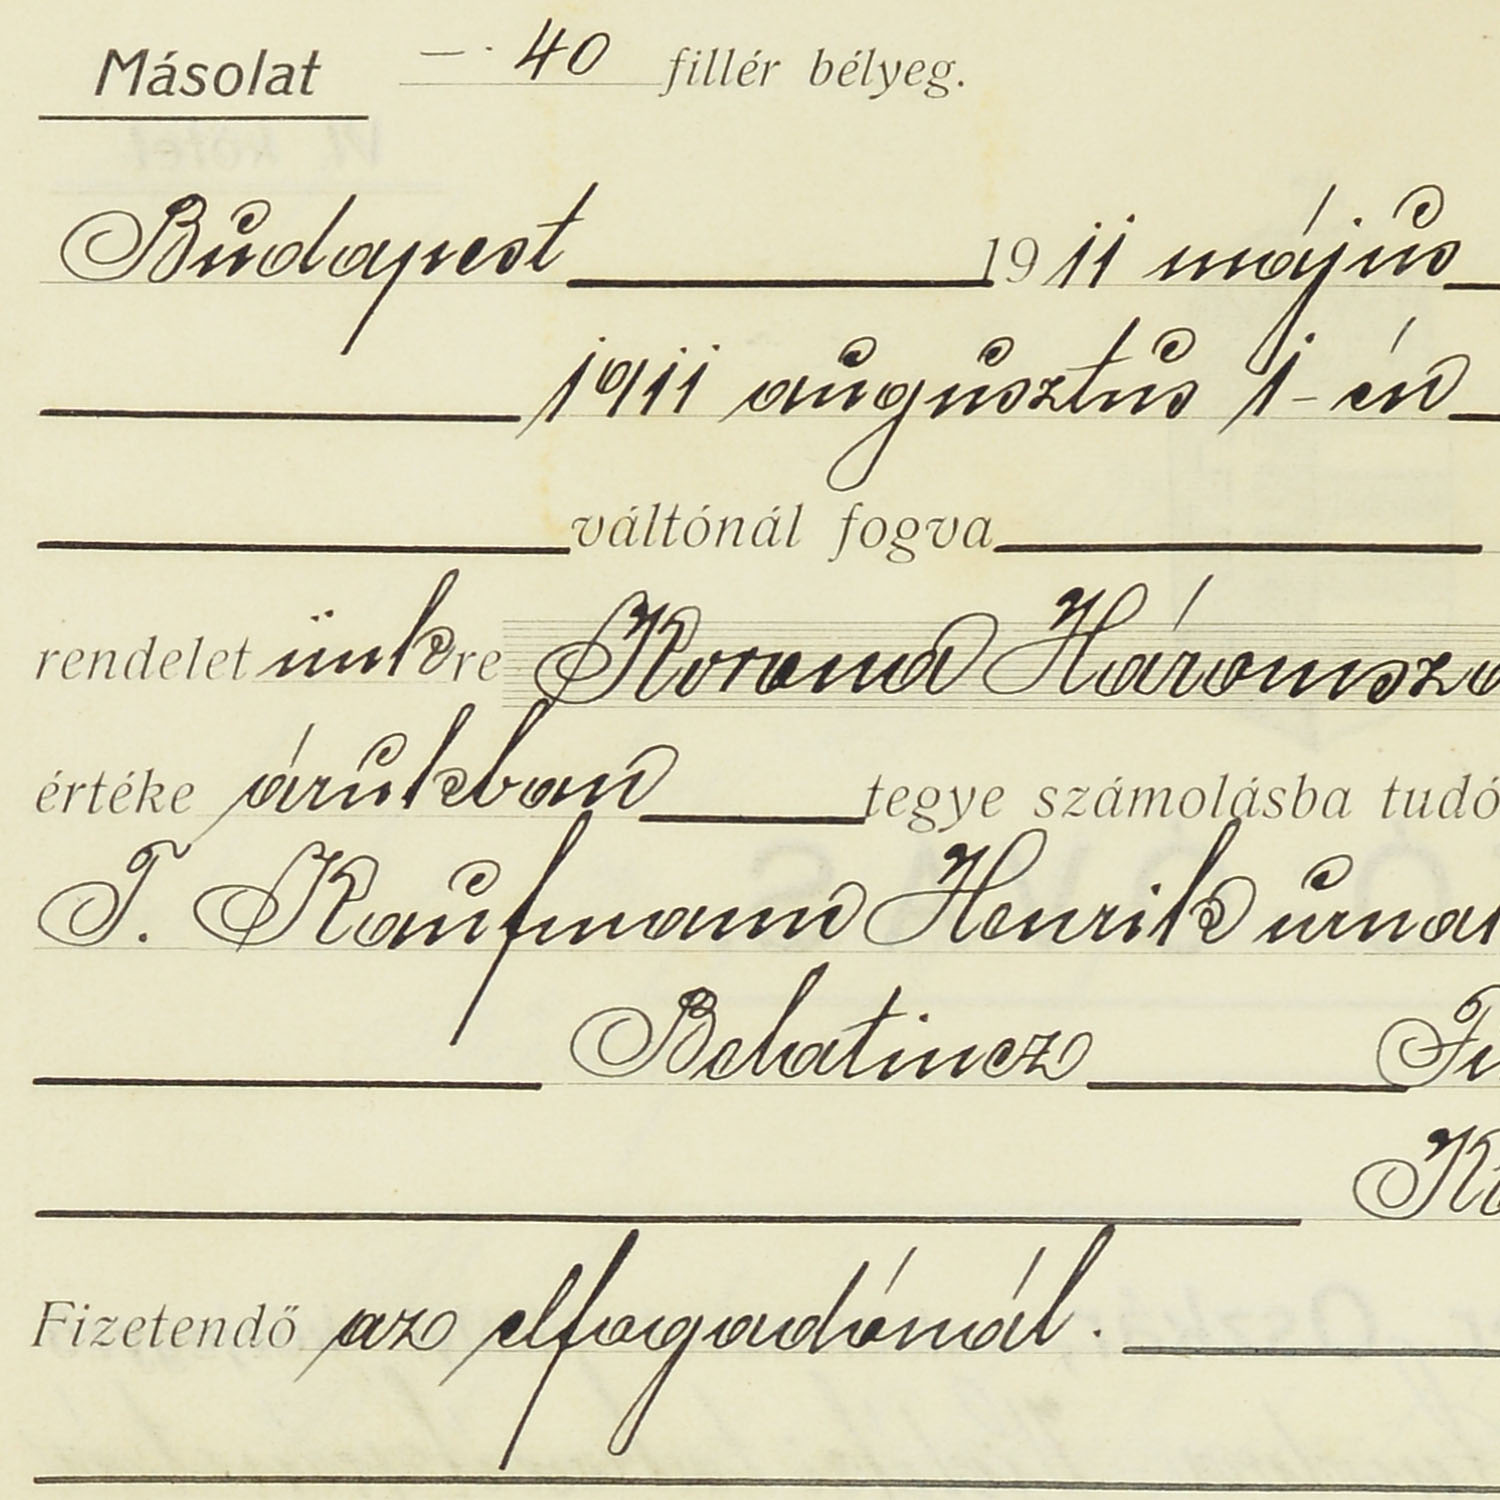 Másolat — . 40 fillér bélyeg.
Budapest 1911 május
1911 augusztus 1-én
váltónál fogva
rendelet ünkre Korona Háromszá
értéke árukban tegye számolásba tudó
T. Kaufmann Henrik úrnak
Belatincz
Fizetendő az elfogadónál.